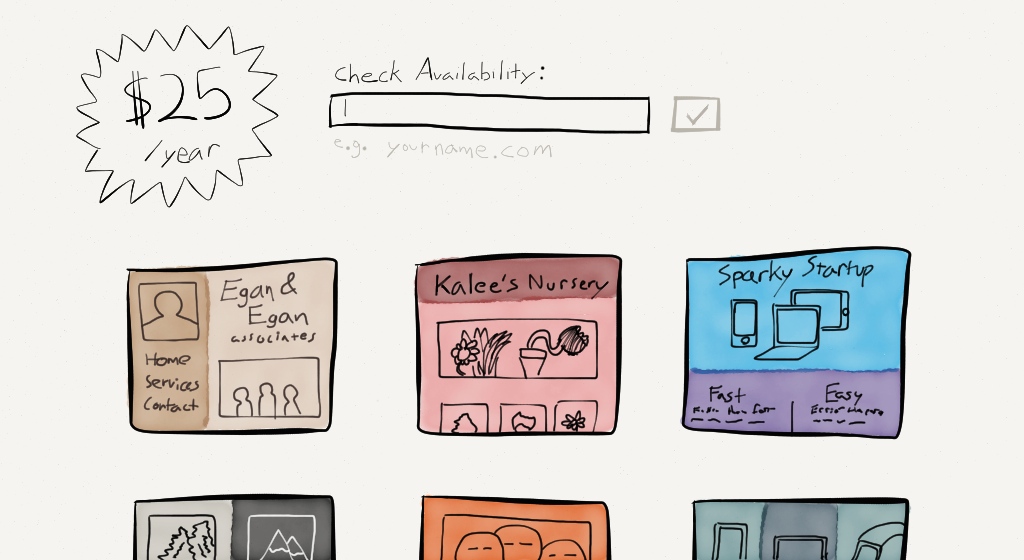 $25
/year
Check Availability:
e.g. yourname.com
Egan &
Egan
associates
Home
Services
Contact
Kalee's Nursery
Sparky Startup
Fast
Easy